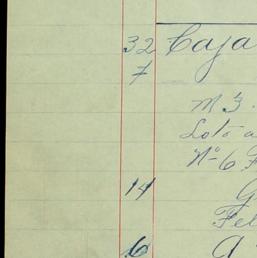 32 Caja
7
M 3.
Loto a
Nº 6 F
14 G
Fel
6 a